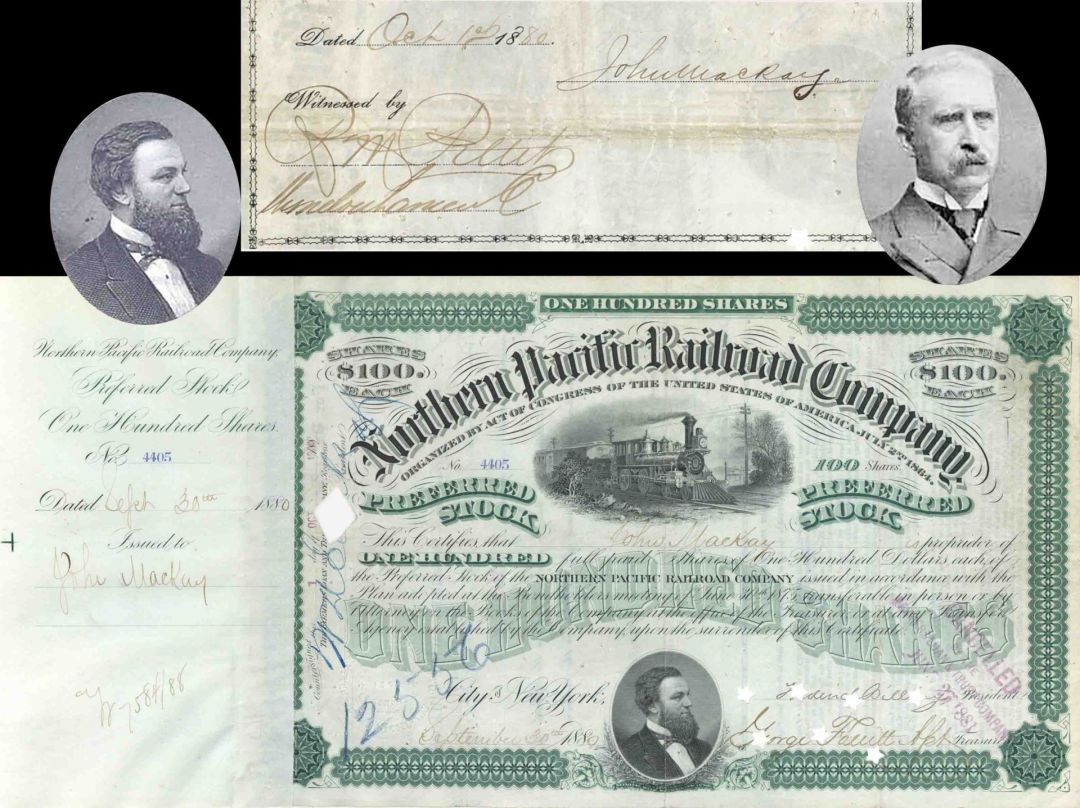 Dated Oct 1st 1880.
John Mackay
Witnessed by
ONE HUNDRED SHARES
Northern Pacific Railroad Company.
Preferred Stock
One Hundred Shares.
No. 4405
Dated Sept 30th 1880
Issued to
John MacKay
SHARES $100. EACH
SHARES $100. EACH
Northern Pacific Railroad Company,
ORGANIZED BY ACT OF CONGRESS OF THE UNITED STATES OF AMERICA, JULY 2ND 1864.
No. 4405
100 Shares.
PREFERRED STOCK
PREFERRED STOCK
This Certifies that John MacKay is proprietor of
ONE HUNDRED full paid Shares of One Hundred Dollars each, of
the Preferred Stock of the NORTHERN PACIFIC RAILROAD COMPANY issued in accordance with the
Plan adopted at the Bondholders meeting of June 30th 1875, transferable in person or by
Attorney on the Books of the Company at the office of the Treasurer or at any Transfer
Agency established by the Company, upon the surrender of this Certificate.
ONE HUNDRED SHARES
City of New York,
September 30th 1880
President
Treasurer
12556
CANCELLED